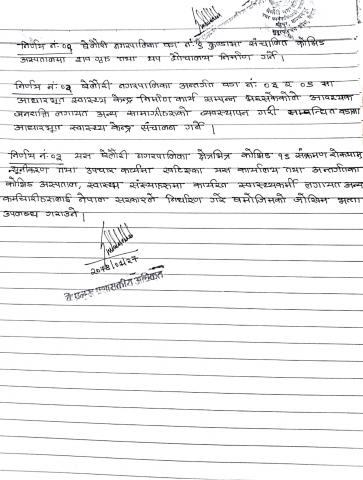 निर्णय नं. ०१ बेलौरी नगरपालिका वडा नं. ५ कुण्डामा संचालित कोभिड
अस्पतालमा थप तथा थप शौचालय निर्माण गर्ने ।
निर्णय नं. ०२ बेलौरी नगरपालिका अन्तर्गत वडा नं. ०२ र ०८ मा
आधारभूत स्वास्थ्य केन्द्र निर्माण कार्य सम्पन्न भईसकेकोले आवश्यक
जनशक्ति लगायत अन्य सामाग्रीहरुको व्यवस्थापन गरी सम्बन्धित वडामा
आधारभूत स्वास्थ्य केन्द्र संचालन गर्ने ।
निर्णय नं. ०३ यस बेलौरी नगरपालिका क्षेत्रभित्र कोभिड १९ संक्रमण रोकथाम
न्यूनीकरण तथा उपचार कार्यमा खटिएका यस कार्यालय तथा अन्तर्गतका
कोभिड अस्पताल, स्वास्थ्य संस्थाहरुमा कार्यरत स्वास्थ्यकर्मी लगायत अन्य
कर्मचारीहरुलाई नेपाल सरकारले निर्धारण गरे बमोजिमको जोखिम भत्ता
उपलब्ध गराउने ।
प्रशासकीय अधिकृत